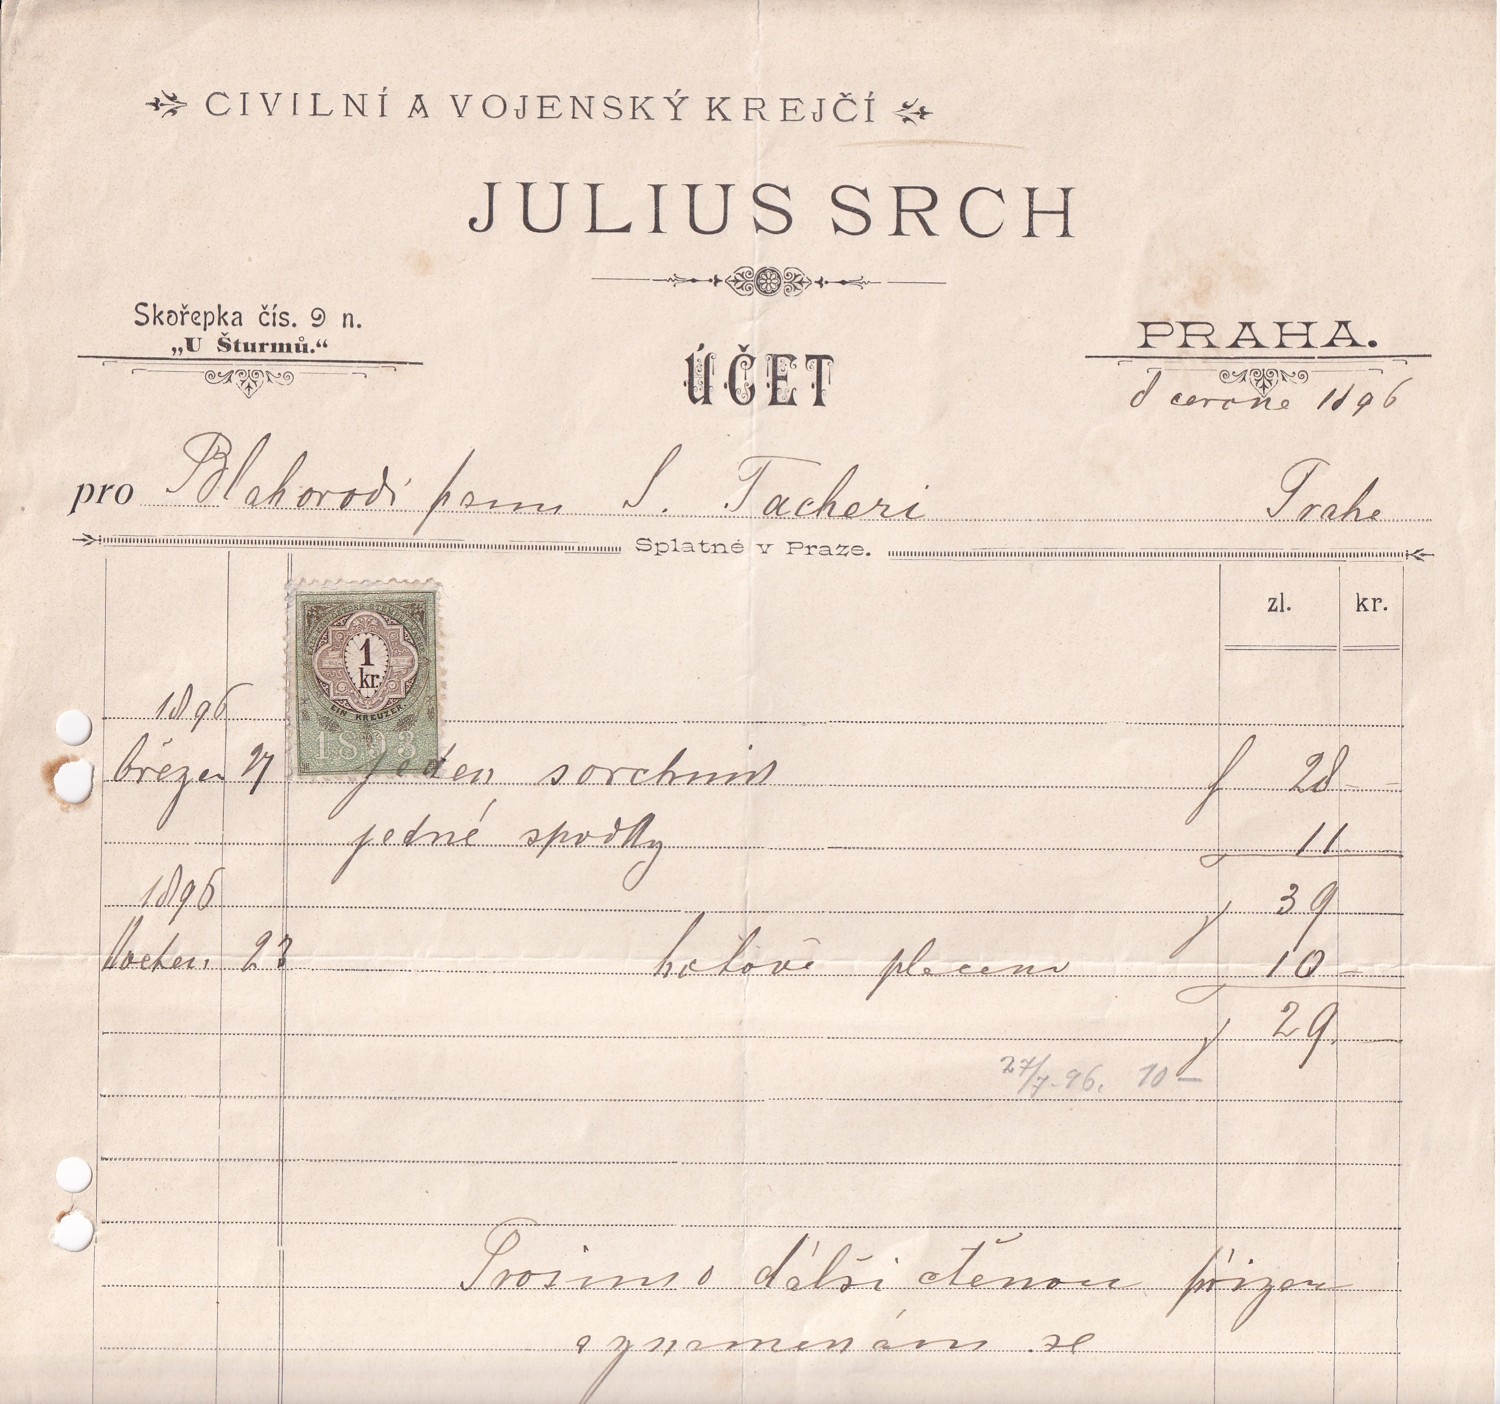 CIVILNÍ A VOJENSKÝ KREJČÍ
JULIUS SRCH
Skořepka čís. 9 n.
„U Šturmů.“
PRAHA.
ÚČET
8 června 1896
pro Blahorodí panu S. Tacheri Praha
Splatné v Praze.
zl. kr.
1 kr.
EIN KREUZER.
1893
1896
březen 27 jeden svrchník f 28 —
jedné spodky 11
1896
39
23 hotově placeno 10 —
29
27/7. 96. 10 —
Prosím o další ctěnou přízeň
a znamenám se